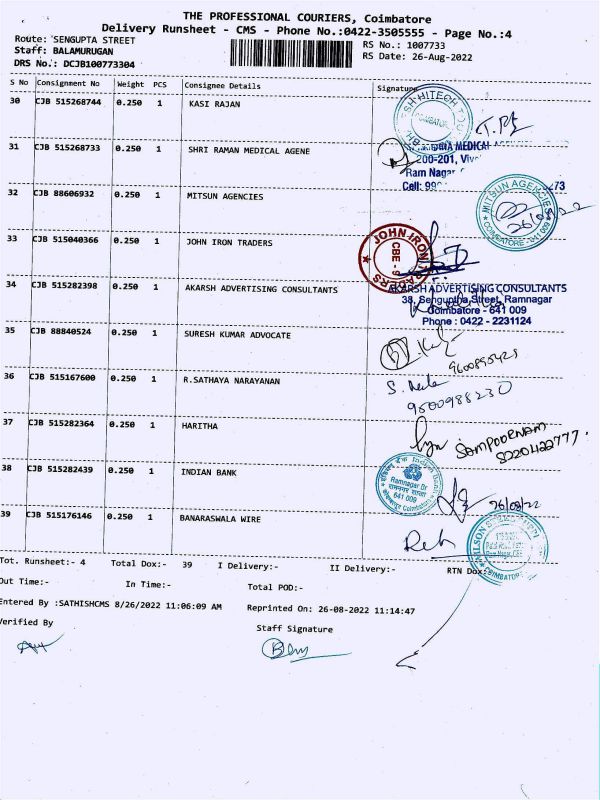 THE PROFESSIONAL COURIERS, Coimbatore
Delivery Runsheet - CMS - Phone No.:0422-3505555 - Page No.:4
Route: SENGUPTA STREET
RS No.: 1007733
Staff: BALAMURUGAN
RS Date: 26-Aug-2022
DRS No.: DCJB100773304
S No Consignment No Weight PCS Consignee Details Signature
30 CJB 515268744 0.250 1 KASI RAJAN
31 CJB 515268733 0.250 1 SHRI RAMAN MEDICAL AGENE
MEDICAL
200-201,
Ram Nagar
Cell:
273
32 CJB 88606932 0.250 1 MITSUN AGENCIES
MITSUN AGENCIES
COIMBATORE - 641 009
26/08/22
33 CJB 515040366 0.250 1 JOHN IRON TRADERS
JOHN IRON TRADERS
CBE - 9
34 CJB 515282398 0.250 1 AKARSH ADVERTISING CONSULTANTS
AKARSH ADVERTISING CONSULTANTS
38, Senguptha Street, Ramnagar
Coimbatore - 641 009
Phone : 0422 - 2231124
35 CJB 88840524 0.250 1 SURESH KUMAR ADVOCATE
36 CJB 515167600 0.250 1 R.SATHAYA NARAYANAN
9500988230
37 CJB 515282364 0.250 1 HARITHA
SAMPOORNAM
38 CJB 515282439 0.250 1 INDIAN BANK
Indian Bank
Ramnagar Br
641 009
26/08/22
39 CJB 515176146 0.250 1 BANARASWALA WIRE
Tot. Runsheet:- 4 Total Dox:- 39 I Delivery:- II Delivery:- RTN Dox:
Out Time:- In Time:- Total POD:-
Entered By :SATHISHCMS 8/26/2022 11:06:09 AM Reprinted On: 26-08-2022 11:14:47
Verified By
Staff Signature